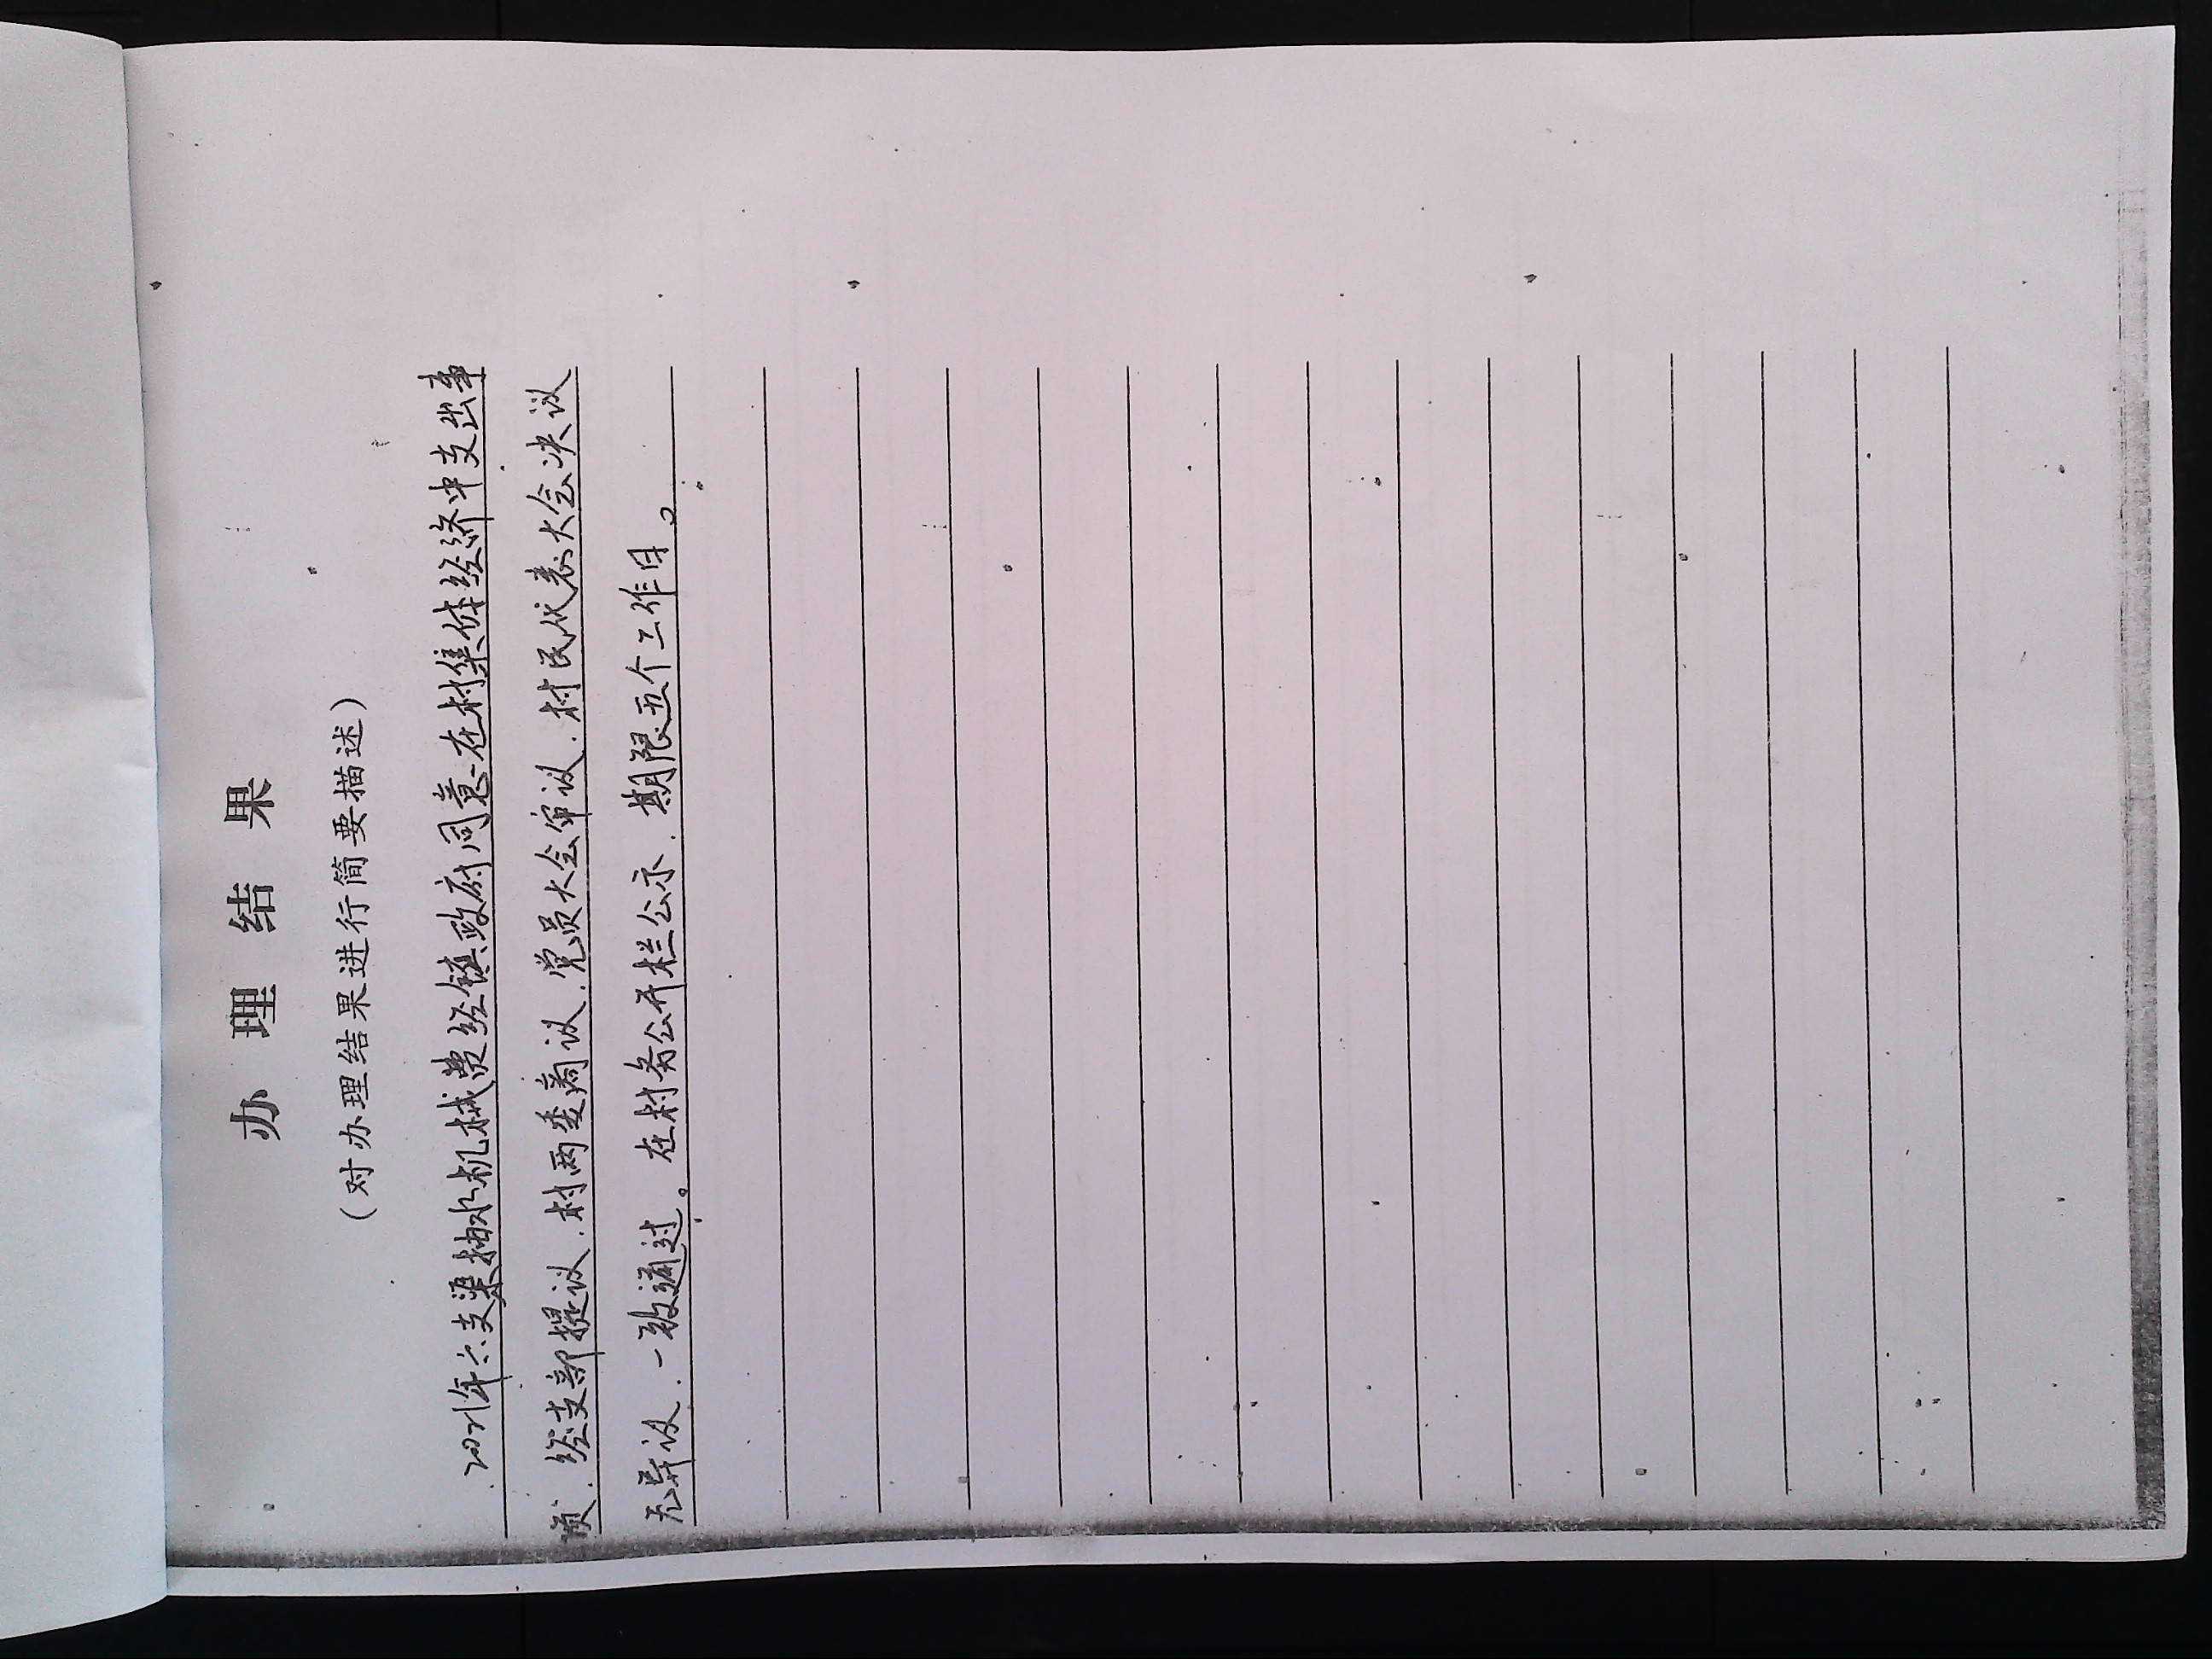 办理结果
（对办理结果进行简要描述）
2021年六支渠抽水机械费经镇政府同意在村集体经济中支出事
项．经支部提议．村两委商议．党员大会审议．村民代表大会决议
无异议．一致通过。在村务公开栏公示．期限五个工作日。